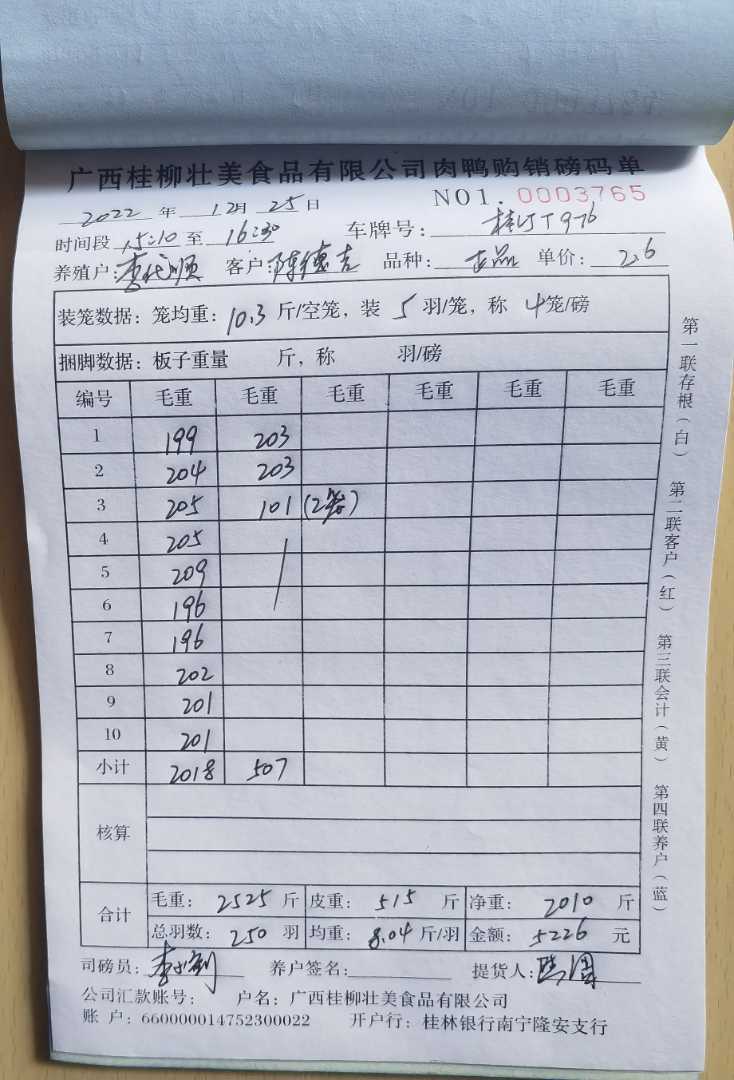 广西桂柳壮美食品有限公司肉鸭购销磅码单
2022 年 12月 25日 NO1. 0003765
时间段 15:10 至 16:30 车牌号: 976
养殖户: 客户: 陈德吉 品种: 正品 单价: 2.6
装笼数据: 笼均重: 10.3 斤/空笼, 装 5 羽/笼, 称 4笼/磅
捆脚数据: 板子重量 斤, 称 羽/磅
编号 毛重 毛重 毛重 毛重 毛重 毛重
1 199 203
2 204 203
3 205 101 (2笼)
4 205
5 209
6 196
7 196
8 202
9 201
10 201
小计 2018 507
核算
合计 毛重: 2525 斤 皮重: 515 斤 净重: 2010 斤
总羽数: 250 羽 均重: 8.04 斤/羽 金额: 5226 元
司磅员: 养户签名: 提货人:
公司汇款账号: 户名: 广西桂柳壮美食品有限公司
账 户: 660000014752300022 开户行: 桂林银行南宁隆安支行
第一联存根(白) 第二联客户(红) 第三联会计(黄) 第四联养户(蓝)